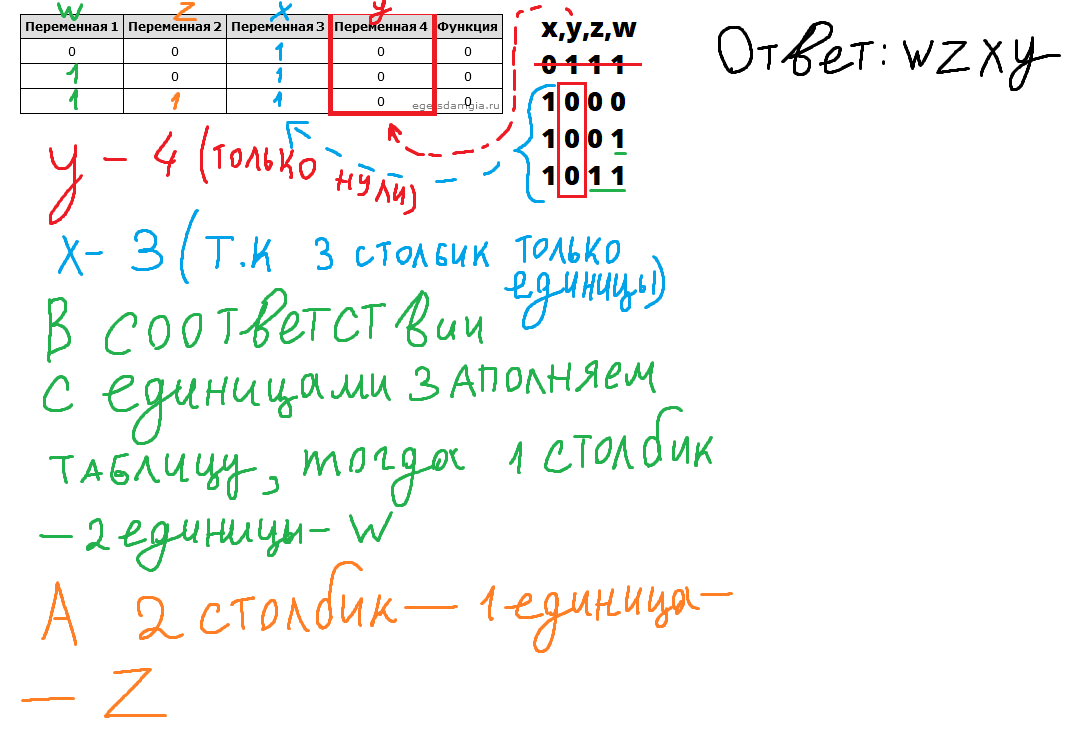 w z x y
Переменная 1 Переменная 2 Переменная 3 Переменная 4 Функция
0 0 1 0 0
1 0 1 0 0
1 1 1 0 0
egeisdamgia.ru
x,y,z,w
0 1 1 1
1 0 0 0
1 0 0 1
1 0 1 1
Ответ: wzxy
y - 4 (только
нули)
x- 3 (т.к 3 столбик только
единицы)
В соответствии
с единицами заполняем
таблицу, тогда 1 столбик
- 2 единицы - w
А 2 столбик - 1 единица -
- z